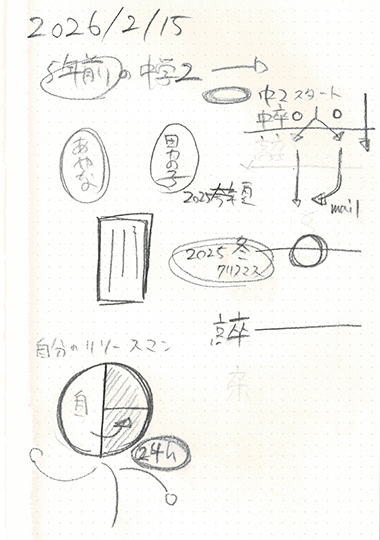 2026/2/15
5年前の中学2
中2スタート
中卒
あやな
男の子
2025 夏
mail
2025 冬
クリスマス
高卒
自分のリソースマン
自
24h